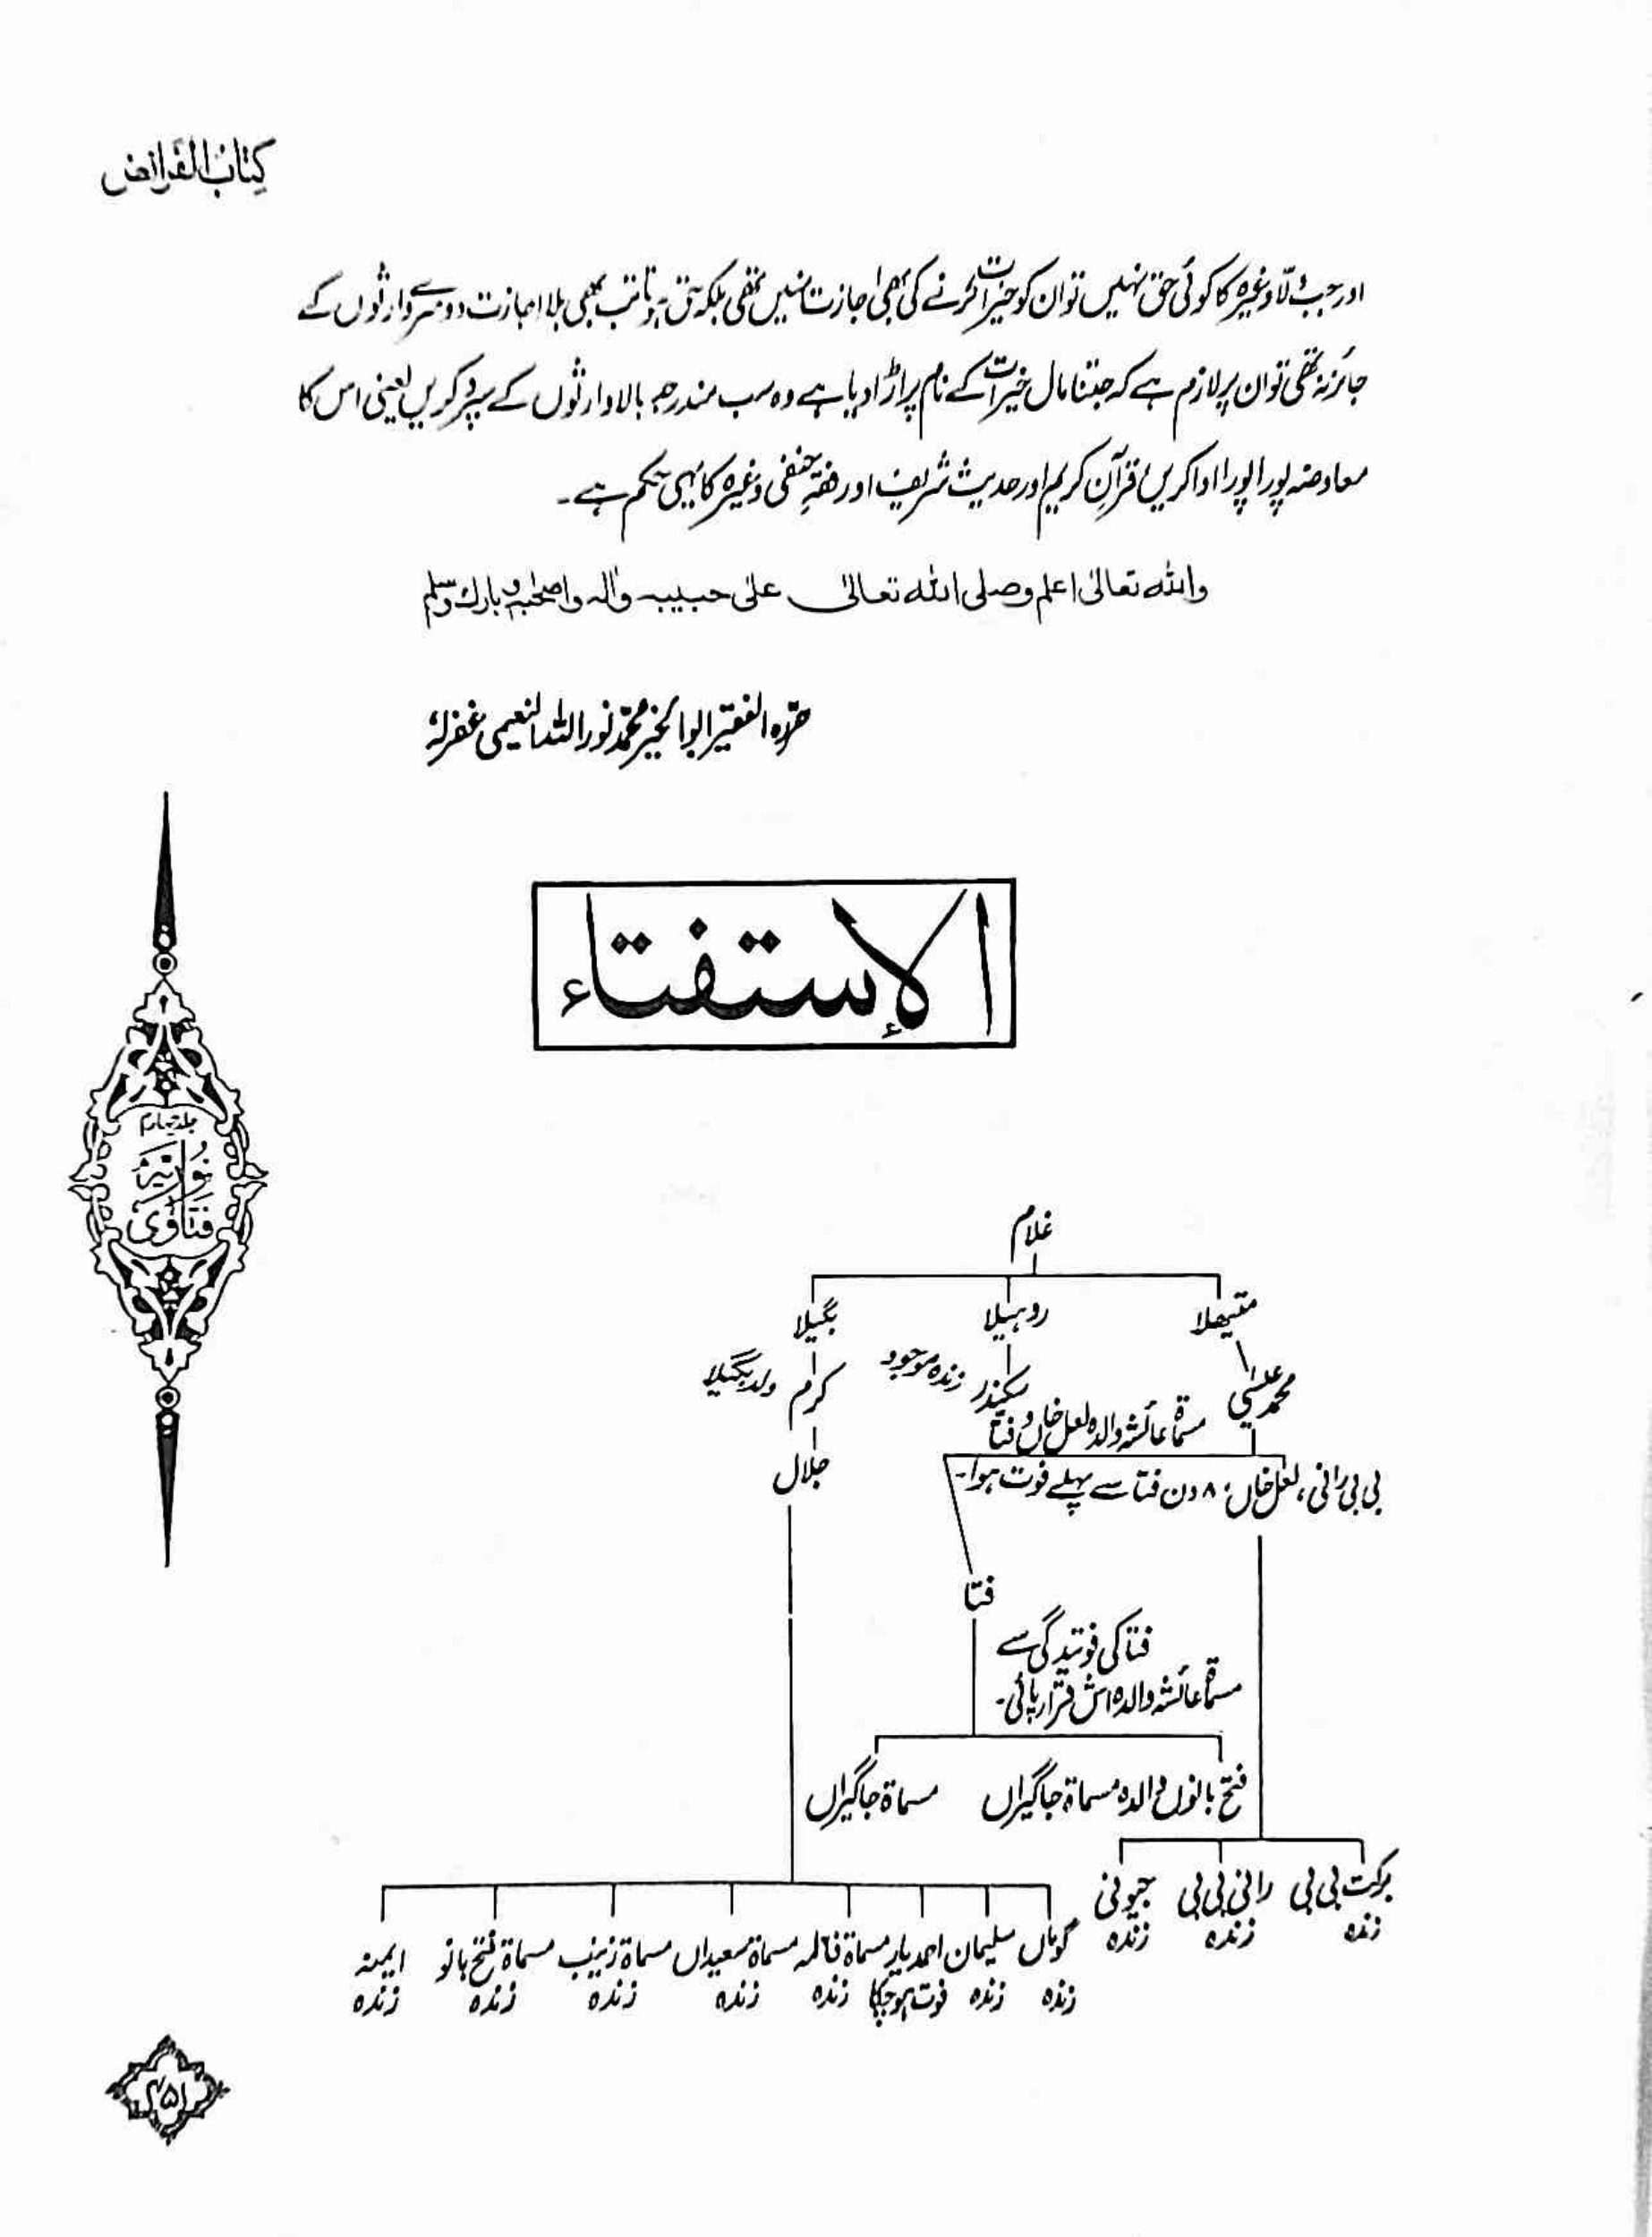 کتاب الفرائض
اور جب وُلّا وغیرہ کا کوئی حق نہیں تو ان کو خیرات کرنے کی بھی اجازت نہیں تھی بلکہ حق ہوتا تب بھی بلا اجازت دوسرے وارثوں کے
جائز نہ تھی تو ان پر لازم ہے کہ جتنا مال خیرات کے نام پر اڑا دیا ہے وہ سب مندرجہ بالا وارثوں کے سپرد کریں یعنی اس کا
معاوضہ پورا پورا ادا کریں قرآنِ کریم اور حدیث شریف اور فقہِ حنفی وغیرہ کا یہی حکم ہے۔
والله تعالیٰ اعلم وصلی الله تعالیٰ علیٰ حبیبہ واٰلہ واصحٰبہ وبارك وسلم
حرّرہ الفقیر ابوالخیر محمد نور اللہ النعیمی غفرلہٗ
الإستفتاء
جلد چہارم
نوریّہ
فتاوٰی
غلام
متیھلا
روہیلا
بگیلا
محمد عیسٰی
سکندر زندہ موجود
کرم ولد بگیلا
مسماۃ عائشہ والدہ لعل خاں و فتا
جلال
بی بی رانی، لعل خاں، ۸ دن فتا سے پہلے فوت ہوا۔
فتا
فتا کی فوتیدگی سے
مسماۃ عائشہ والدہ اش قرار پائی۔
فتح بانوں والدہ مسماۃ جاگیراں
مسماۃ جاگیراں
برکت بی بی زندہ
رانی بی بی زندہ
جیونی زندہ
گوہاں سلیمان احمد یار مسماۃ فاطمہ مسماۃ سعیداں مسماۃ زینب مسماۃ فتح بانو ایمنہ
زندہ زندہ فوت ہوچکا زندہ زندہ زندہ زندہ زندہ
۴۵۱